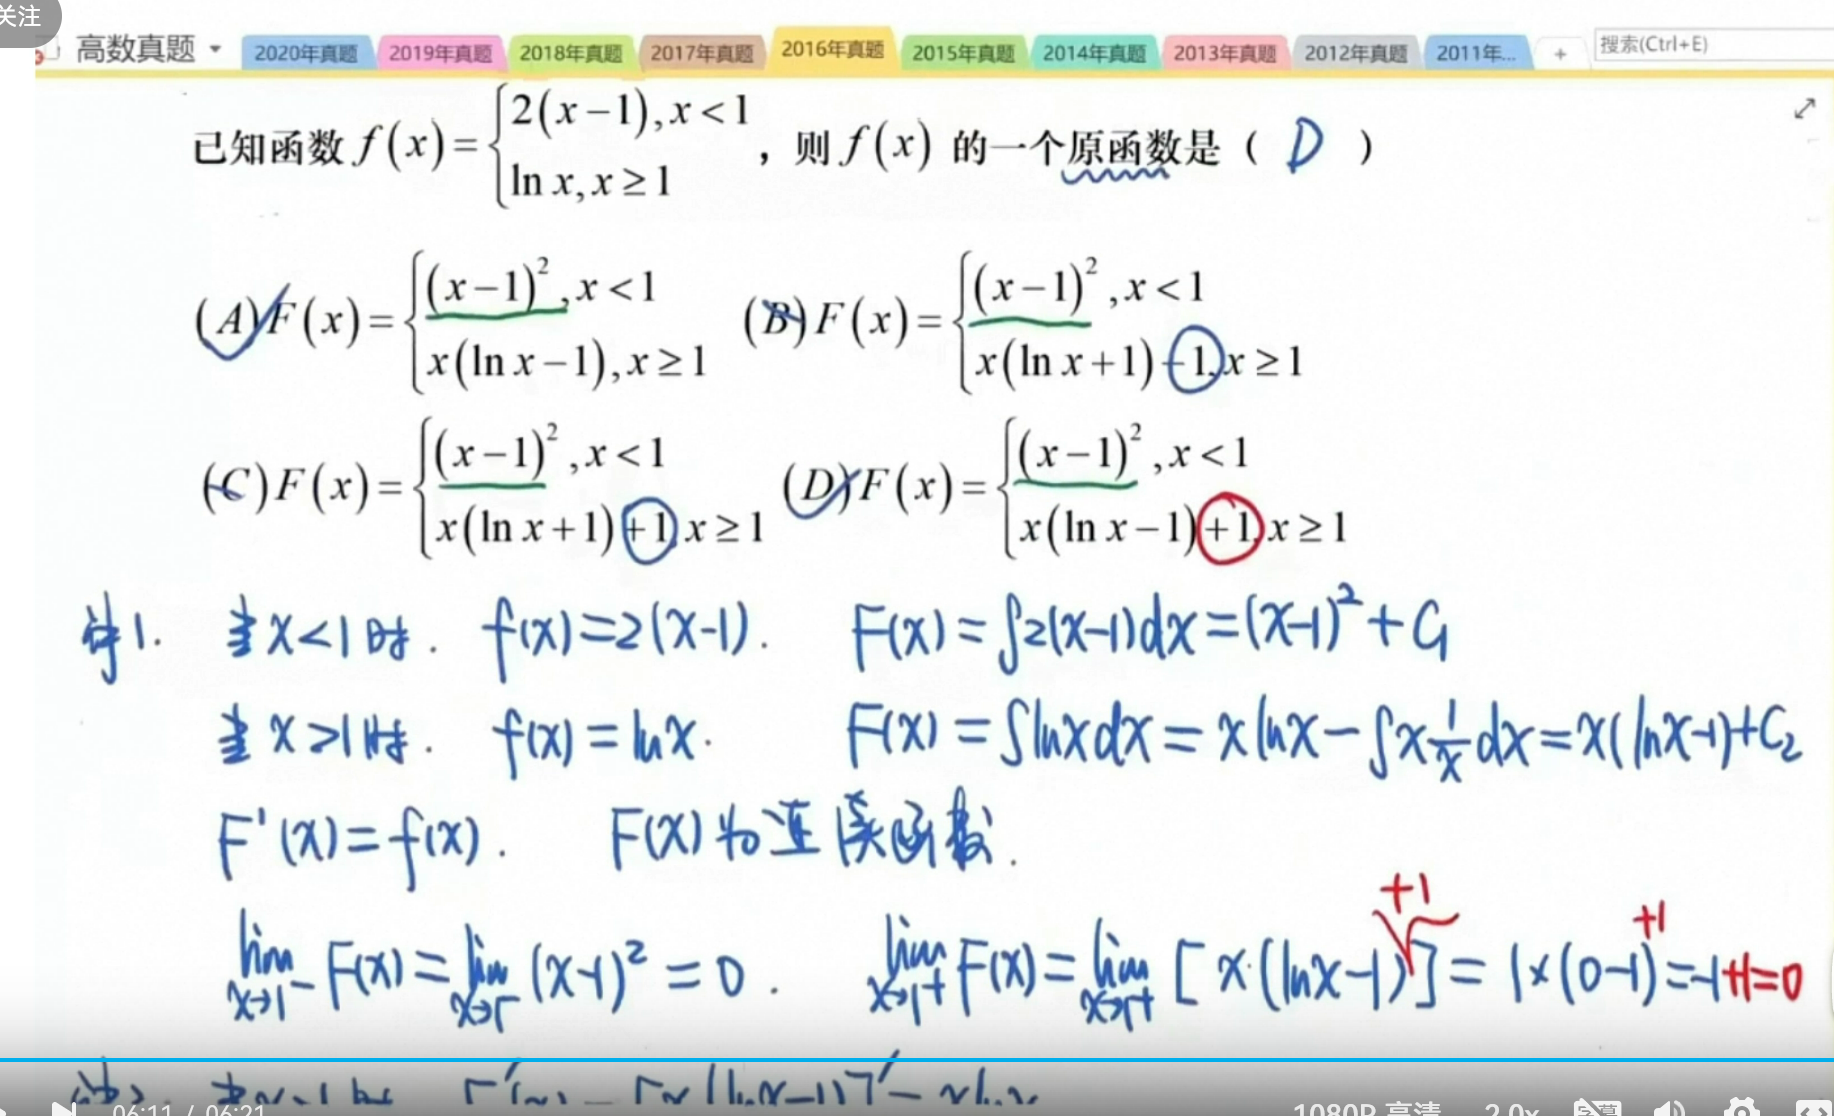 关注
高数真题 2020年真题 2019年真题 2018年真题 2017年真题 2016年真题 2015年真题 2014年真题 2013年真题 2012年真题 2011年... + 搜索(Ctrl+E)
已知函数 f(x)={2(x−1),x<1 ln x,x≥1 ，则 f(x) 的一个原函数是（ D ）
(A)F(x)={(x−1)²,x<1 x(ln x−1),x≥1 (B)F(x)={(x−1)²,x<1 x(ln x+1)−1,x≥1
(C)F(x)={(x−1)²,x<1 x(ln x+1)+1,x≥1 (D)F(x)={(x−1)²,x<1 x(ln x−1)+1,x≥1
1. 当x<1时. f(x)=2(x-1). F(x)=∫2(x-1)dx=(x-1)²+C₁
当x>1时. f(x)=lnx. F(x)=∫lnxdx=xlnx-∫x 1/x dx=x(lnx-1)+C₂
F'(x)=f(x). F(x)为连续函数.
+1 +1
lim x→1⁻ F(x)=lim x→1⁻ (x-1)²=0. lim x→1⁺ F(x)=lim x→1⁺ [x·(lnx-1)]=1×(0-1)=-1+1=0
06:11 / 06:21 1080P 高清 2.0x